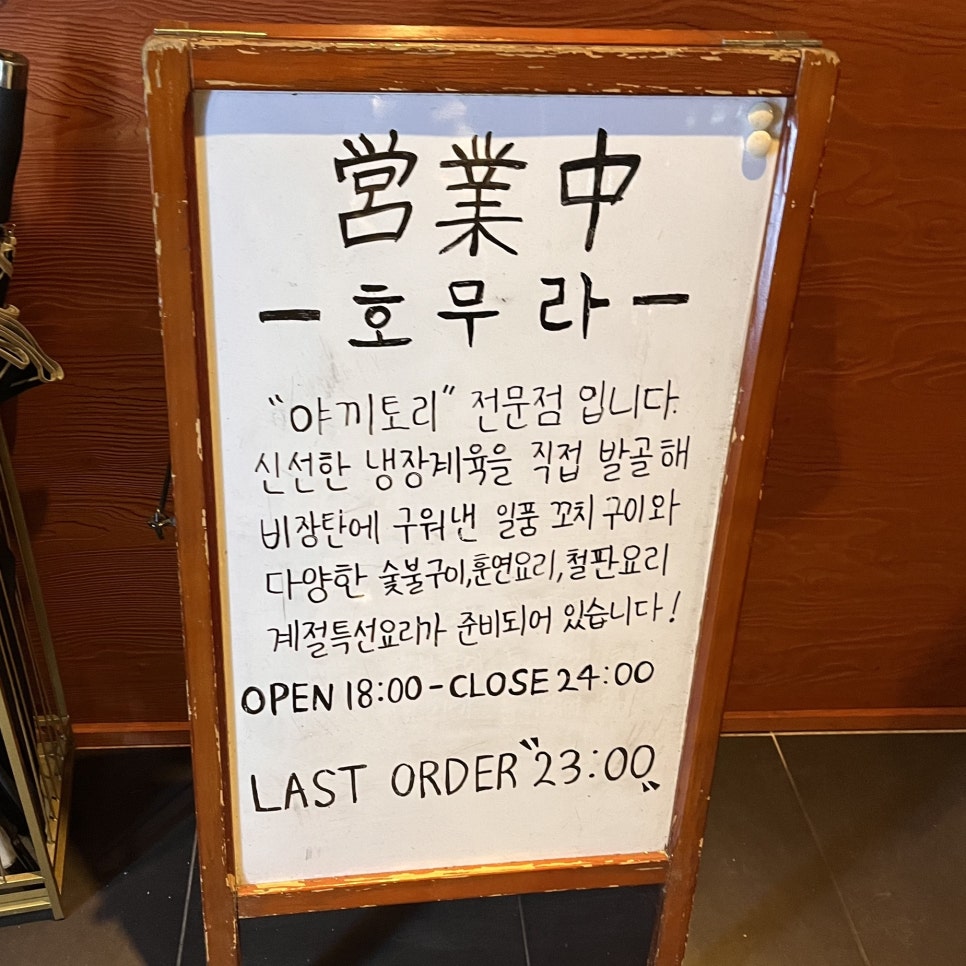 営業中
-호무라-
"야끼토리" 전문점 입니다.
신선한 냉장계육을 직접 발골해
비장탄에 구워낸 일품 꼬치구이와
다양한 숯불구이,훈연요리,철판요리
계절특선요리가 준비되어 있습니다!
OPEN 18:00-CLOSE 24:00
LAST ORDER "23:00"